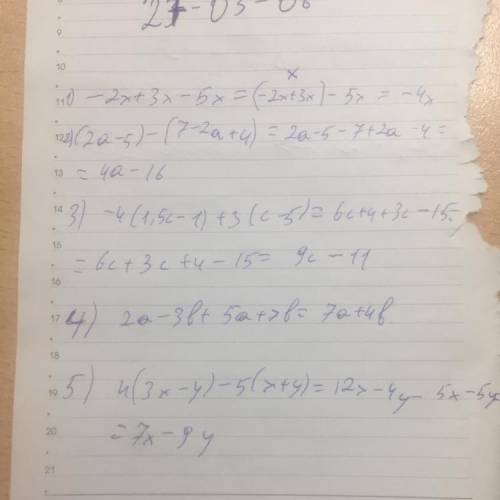 27-03-06
x
1) -2x+3x-5x=(-2x+3x)-5x=-4x
2) (2a-5)-(7-2a+4)=2a-5-7+2a-4=
=4a-16
3) -4(1,5c-1)+3(c-5)=6c+4+3c-15=
=6c+3c+4-15= 9c-11
4) 2a-3b+5a+7b=7a+4b
5) 4(3x-y)-5(x+y)=12x-4y-5x-5y
=7x-9y
9
10
11
12
13
14
15
16
17
18
19
20
21